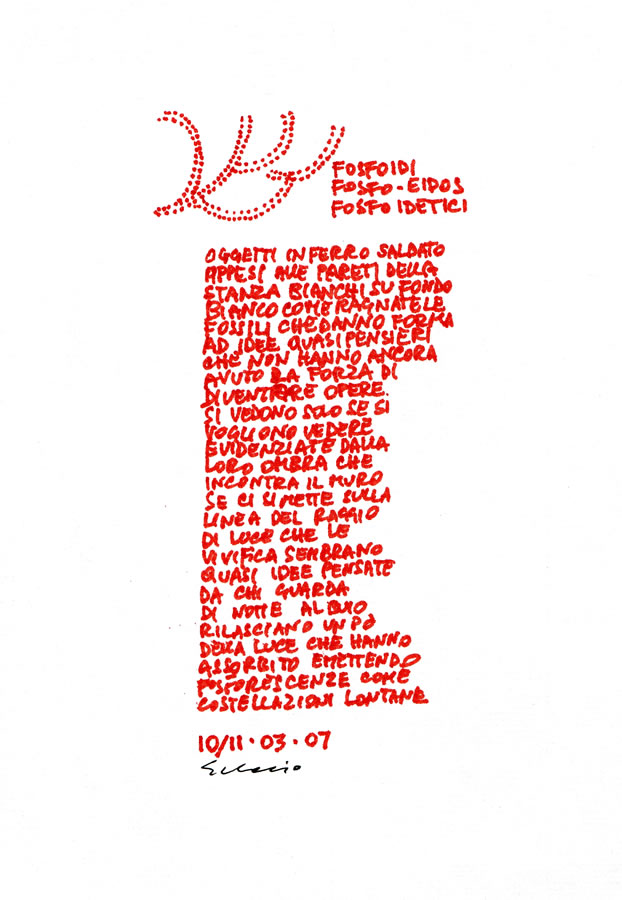 FOSFOIDI
FOSFO-EIDOS
FOSFO IDETICI
OGGETTI IN FERRO SALDATO
APPESI ALLE PARETI DELLA
STANZA BIANCHI SU FONDO
BIANCO COME RAGNATELE
FOSSILI CHE DANNO FORMA
AD IDEE QUASI PENSIERI
CHE NON HANNO ANCORA
AVUTO LA FORZA DI
DIVENTARE OPERE.
SI VEDONO SOLO SE SI
VOGLIONO VEDERE
EVIDENZIATE DALLA
LORO OMBRA CHE
INCONTRA IL MURO
SE CI SI METTE SULLA
LINEA DEL RAGGIO
DI LUCE CHE LE
VIVIFICA SEMBRANO
QUASI IDEE PENSATE
DA CHI GUARDA
DI NOTTE AL BUIO
RILASCIANO UN PÒ
DELLA LUCE CHE HANNO
ASSORBITO EMETTENDO
FOSFORESCENZE COME
COSTELLAZIONI LONTANE
10/11·03·07